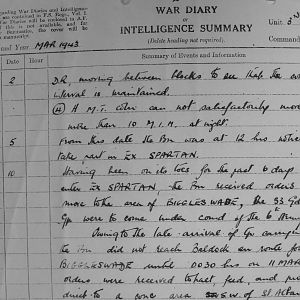 WAR DIARY
or
INTELLIGENCE SUMMARY
(Delete heading not required).
garding War Diaries and Intelligence
are contained in F.S. Regs., Vol. I.
will be enclosed in A.F.
this is not available, and for
the cover will be
Unit
and Year MAR 1943
Date
Hour
Summary of Events and Information
2
D.R. moving between blocks to see that the
interval is maintained.
A M.T. coln can not satisfactorily move
more than 10 M.I.H. at night.
5
From this date the Bn was at 12 hrs notice
take part in EX SPARTAN.
10
Having been on its toes for the past 6 days
enter EX SPARTAN, the Bn received orders
move to the area of BIGGLESWADE, the 33 Gds
Gp were to come under comd of the 6th Armd
Owing to the late arrival of Gp
the Bn did not reach Baldock en route for
BIGGLESWADE until 0030 hrs on 11 MAR
orders were received to halt, feed, and
direct to a conc area SW. of St Alban